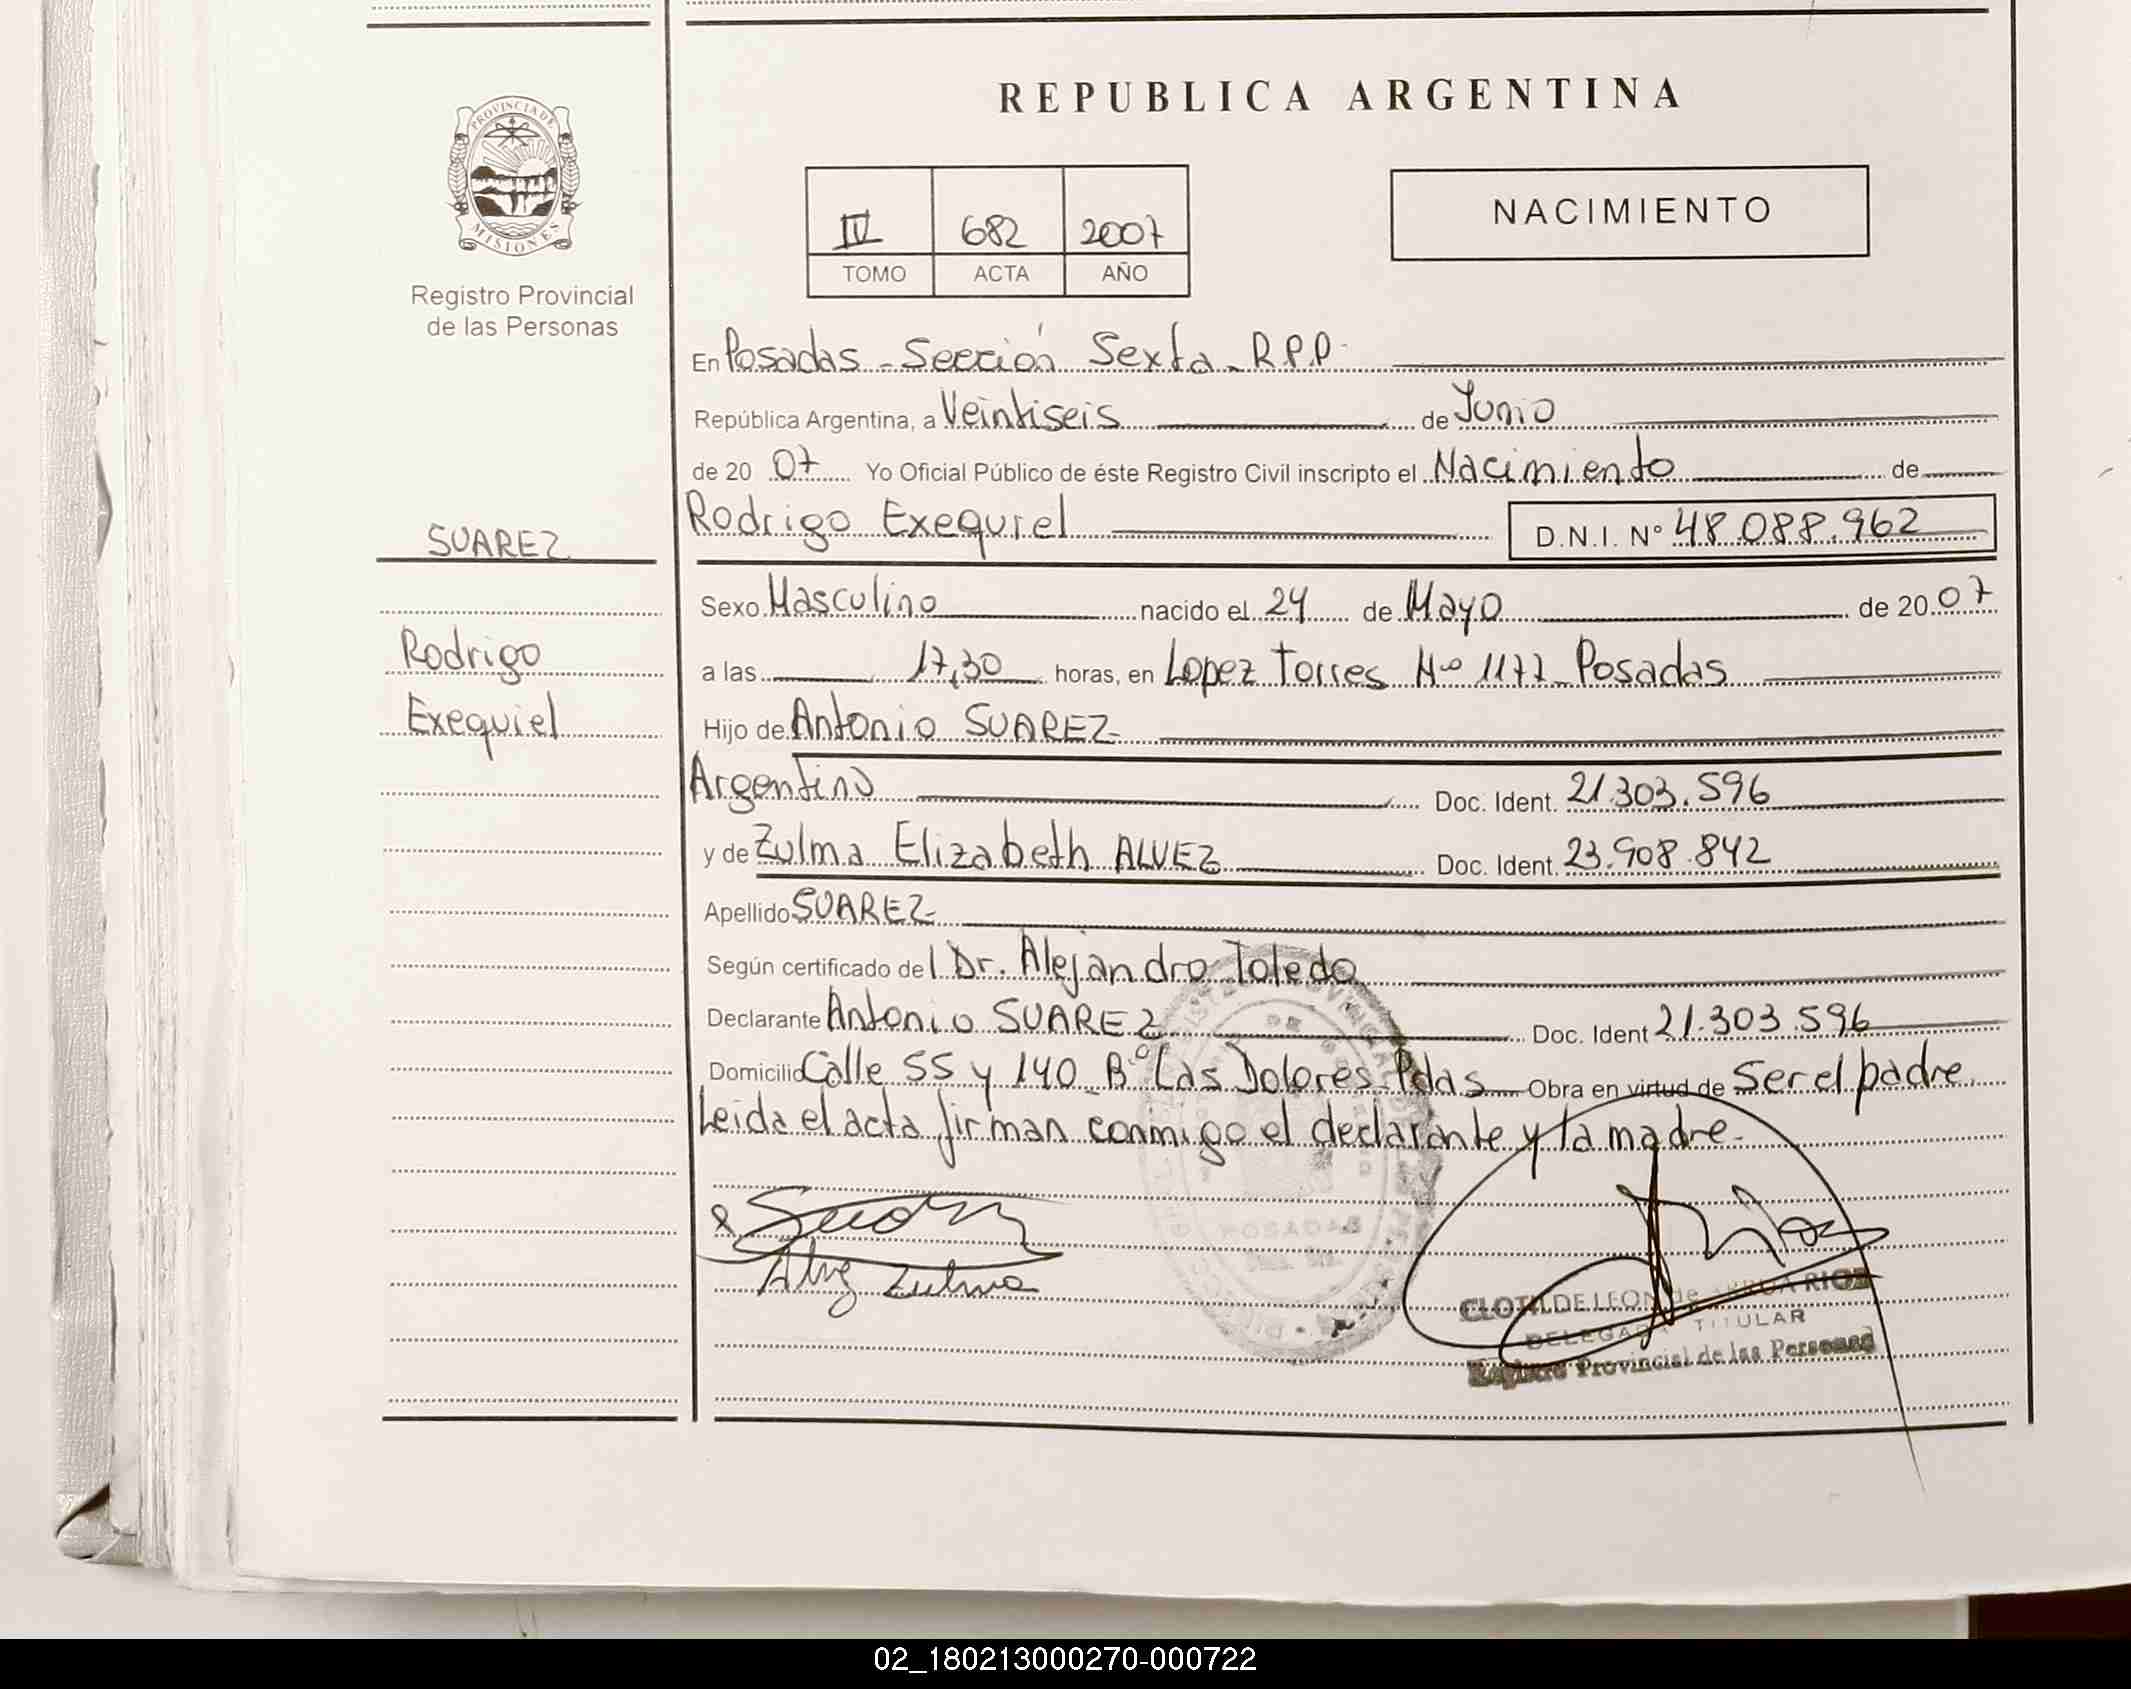 REPUBLICA ARGENTINA
PROVINCIA DE
MISIONES
Registro Provincial
de las Personas
IV 682 2007
TOMO ACTA AÑO
NACIMIENTO
En Posadas - Sección Sexta - R.P.P.
República Argentina, a Veintiseis de Junio
de 20 07 Yo Oficial Público de éste Registro Civil inscripto el Nacimiento de
SUAREZ
Rodrigo Exequiel D.N.I. Nº 48.088.962
Sexo Masculino nacido el 24 de Mayo de 20 07
Rodrigo
a las 17,30 horas, en Lopez Torres Nº 1177 Posadas
Exequiel
Hijo de Antonio SUAREZ
Argentino Doc. Ident. 21.303.596
y de Zulma Elizabeth ALVEZ Doc. Ident. 23.908.842
Apellido SUAREZ
Según certificado del Dr. Alejandro Toledo
Declarante Antonio SUAREZ Doc. Ident 21.303.596
Domicilio Calle 55 y 140 Bº Las Dolores Pdas Obra en virtud de Ser el padre
Leida el acta firman conmigo el declarante y la madre.
POSADAS
Zulma
CLOTILDE LEON de RIOS
DELEGADA TITULAR
Registro Provincial de las Personas
02_180213000270-000722